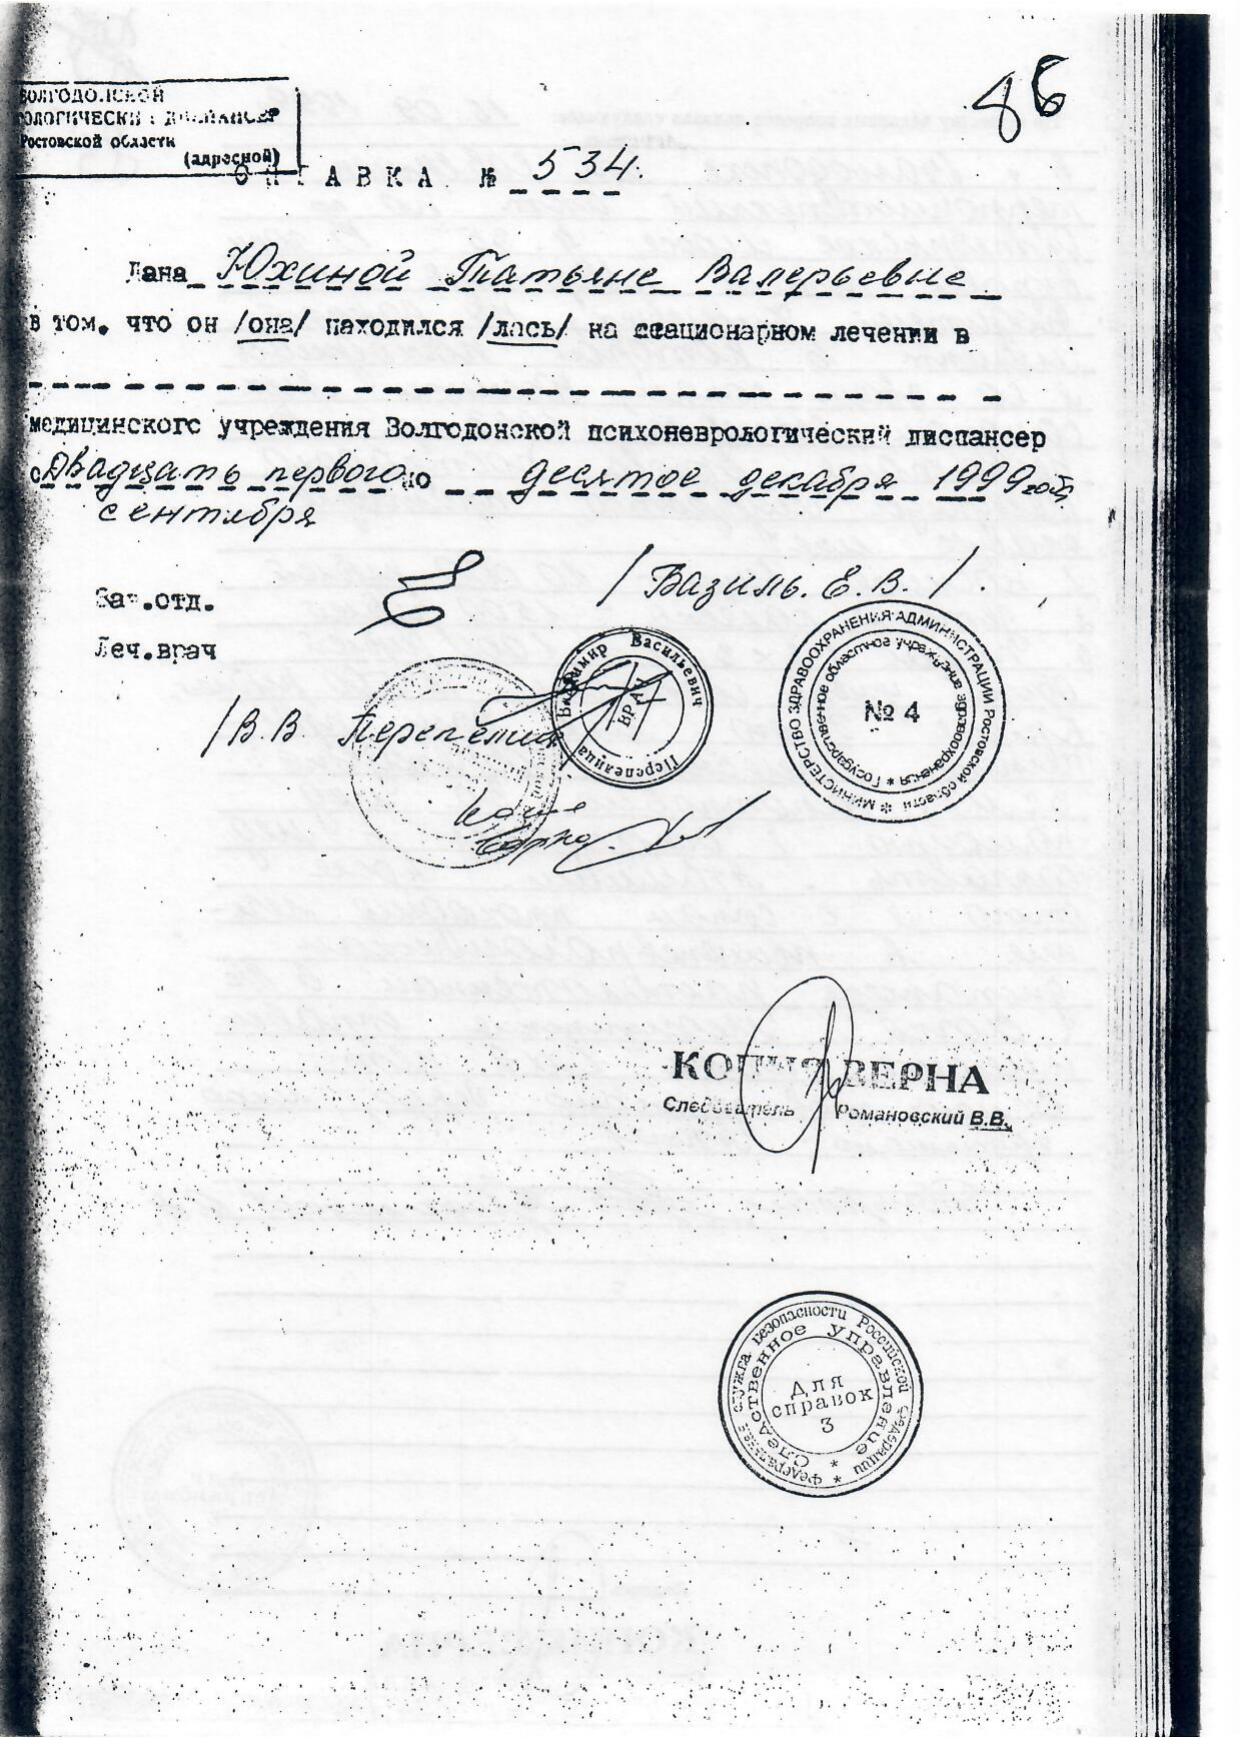 86
ВОЛГОДОНСКОЙ
ОЛОГИЧЕСКИЙ ДИСПАНСЕР
Ростовской области
(адресной)
СПРАВКА № 534.
Дана Юхиной Татьяне Валерьевне
в том, что он /она/ находился /лась/ на стационарном лечении в
медицинского учреждения Волгодонской психоневрологический диспансер
с двадцать первого по десятое декабря 1999 год
сентября
Зав.отд.
/ Вазиль. Е. В. / .
Леч.врач
Владимир Васильевич
Перепелица
ВРАЧ
МИНИСТЕРСТВО ЗДРАВООХРАНЕНИЯ АДМИНИСТРАЦИИ Ростовской области
Государственное областное учреждение здравоохранения
№ 4
/В.В. Перепелица
КОПИЯ ВЕРНА
Следователь Романовский В.В.
Федеральная служба безопасности Российской Федерации
Следственное управление
Для
справок
3